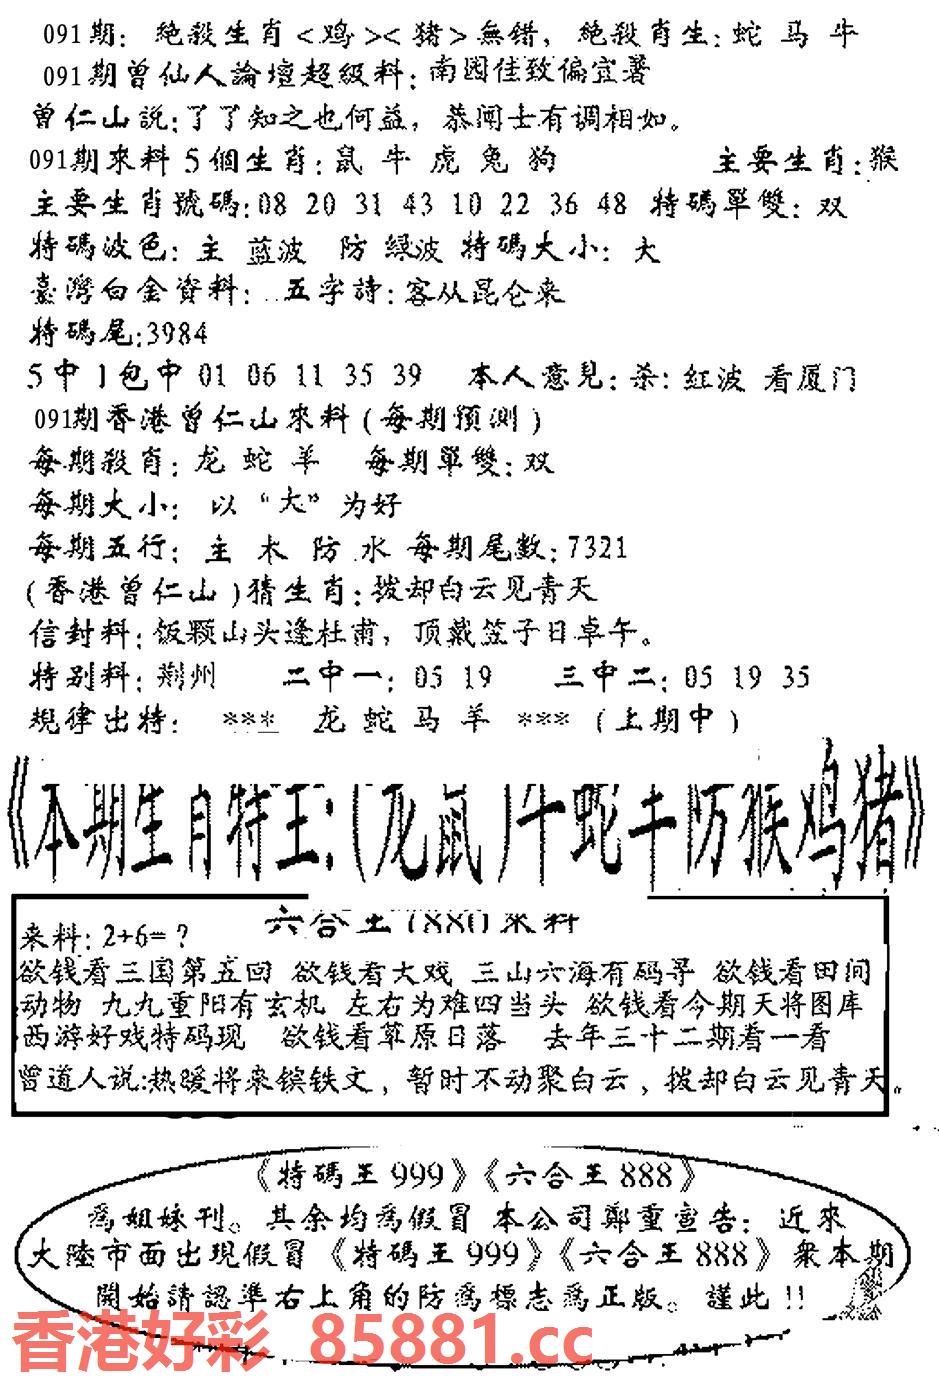 091期：绝殺生肖<鸡><猪>無错，绝殺肖生：蛇 马 牛
091期曾仙人論壇超級料：南园佳致偏宜著
曾仁山說：了了知之也何益，恭闻士有调相如。
091期來料 5個生肖：鼠 牛 虎 兔 狗 主要生肖：猴
主要生肖號碼：08 20 31 43 10 22 36 48 特碼單雙：双
特碼波色：主 蓝波 防 绿波 特碼大小：大
臺灣白金資料：五字詩：客从昆仑来
特碼尾：3984
5中1包中 01 06 11 35 39 本人意見：杀：红波 看厦门
091期香港曾仁山來料(每期预测)
每期殺肖：龙 蛇 羊 每期單雙：双
每期大小：以“大”为好
每期五行：主 木 防 水 每期尾数：7321
(香港曾仁山)猜生肖：拨却白云见青天
信封料：饭颗山头逢杜甫，顶戴笠子日卓午。
特别料：荆州 二中一：05 19 三中二：05 19 35
规律出特：*** 龙 蛇 马 羊 ***(上期中)
《本期生肖特王：(龙鼠)牛蛇牛防猴鸡猪》
六合王1880來料
来料：2+6=？
欲钱看三国第五回 欲钱看大戏 三山六海有码寻 欲钱看田间
动物 九九重阳有玄机 左右为难四当头 欲钱看今期天将图库
西游好戏特码现 欲钱看草原日落 去年三十二期看一看
曾道人说：热暖将来镔铁文，暂时不动聚白云，拨却白云见青天。
《特碼王999》《六合王888》
為姐妹刊。其余均為假冒 本公司鄭重宣告：近來
大陸市面出現假冒《特碼王999》《六合王888》眾本期
開始請認準右上角的防為標志為正版。謹此!!
香港好彩 85881.cc